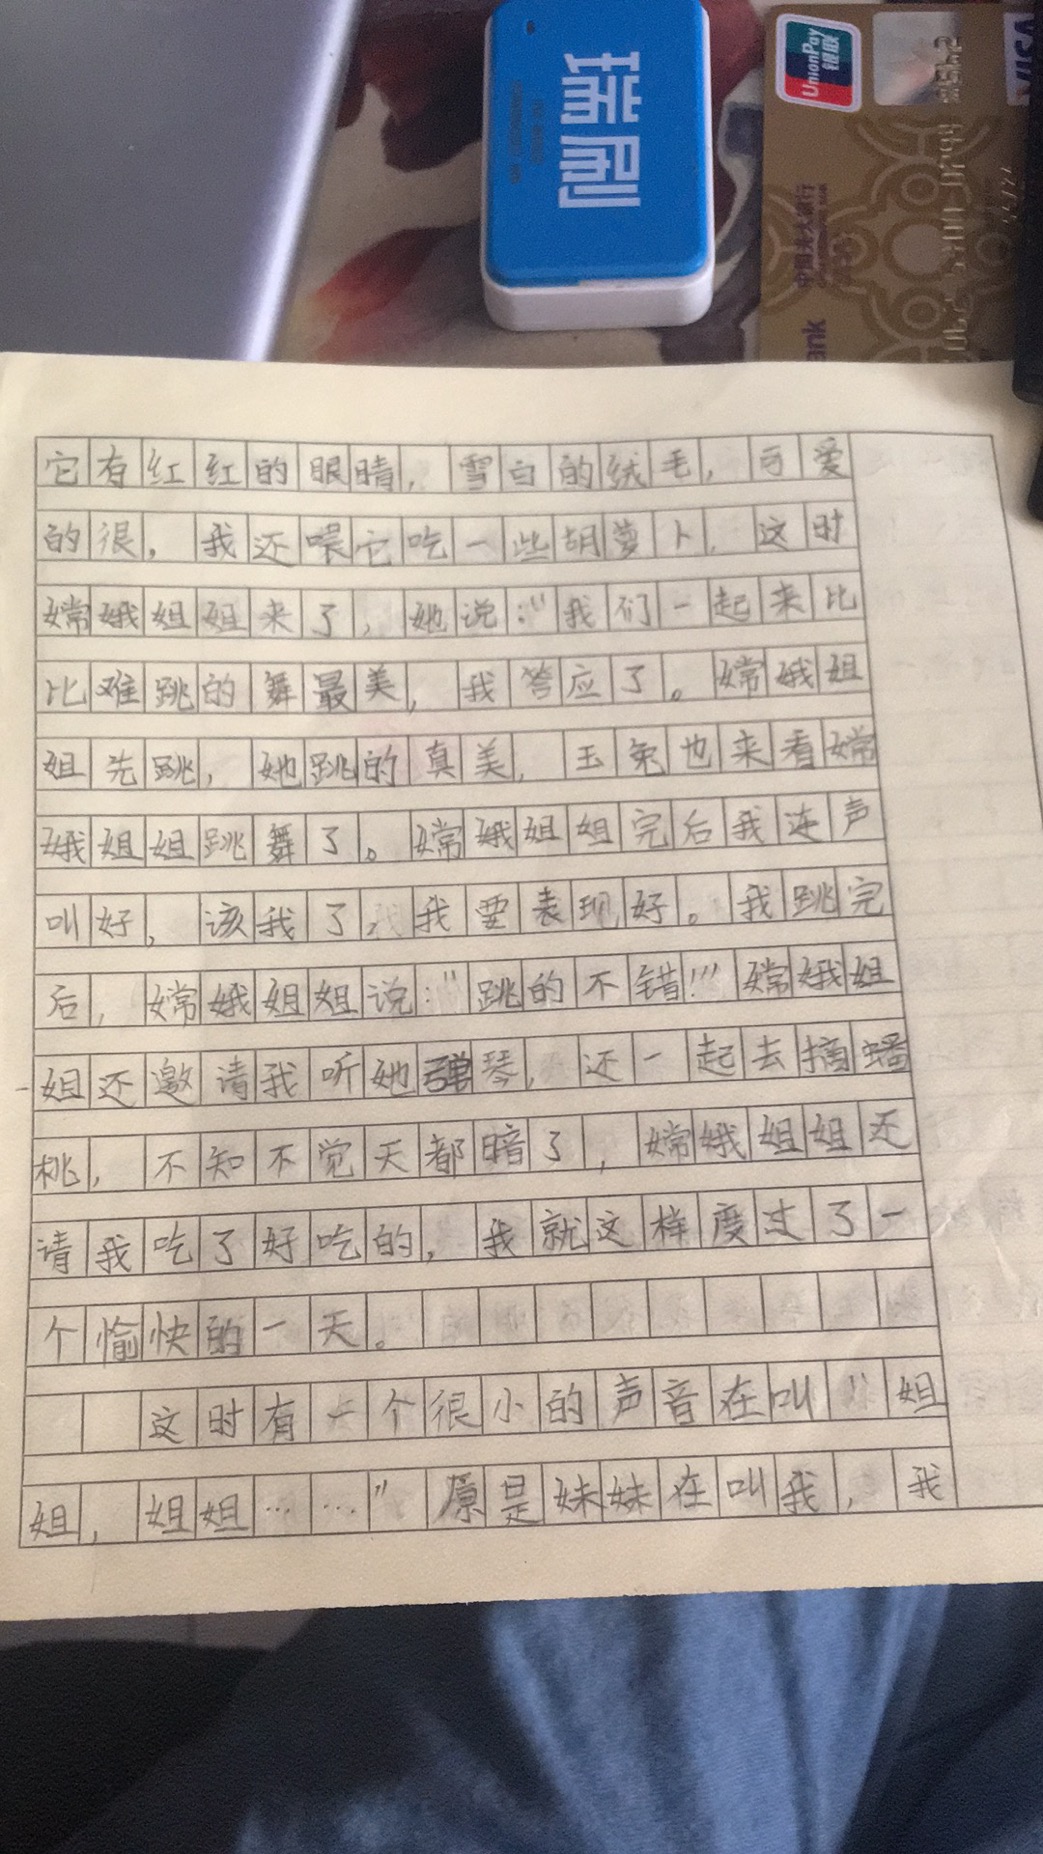 瑞刷
UnionPay
银联
VISA
中国光大银行
它有红红的眼睛，雪白的绒毛，可爱
的很，我还喂它吃一些胡萝卜，这时
嫦娥姐姐来了，她说：“我们一起来比
比难跳的舞最美，我答应了。嫦娥姐
姐先跳，她跳的真美，玉兔也来看嫦
娥姐姐跳舞了。嫦娥姐姐完后我连声
叫好，该我了，我要表现好。我跳完
后，嫦娥姐姐说：“跳的不错！”嫦娥姐
姐还邀请我听她弹琴，还一起去摘蟠
桃，不知不觉天都暗了，嫦娥姐姐还
请我吃了好吃的，我就这样度过了一
个愉快的一天。
这时有一个很小的声音在叫“姐
姐，姐姐……”原是妹妹在叫我，我